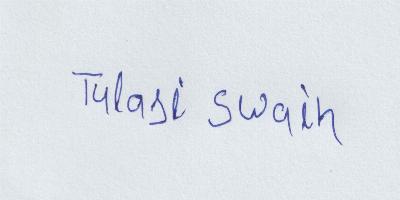 Tulasi Swain